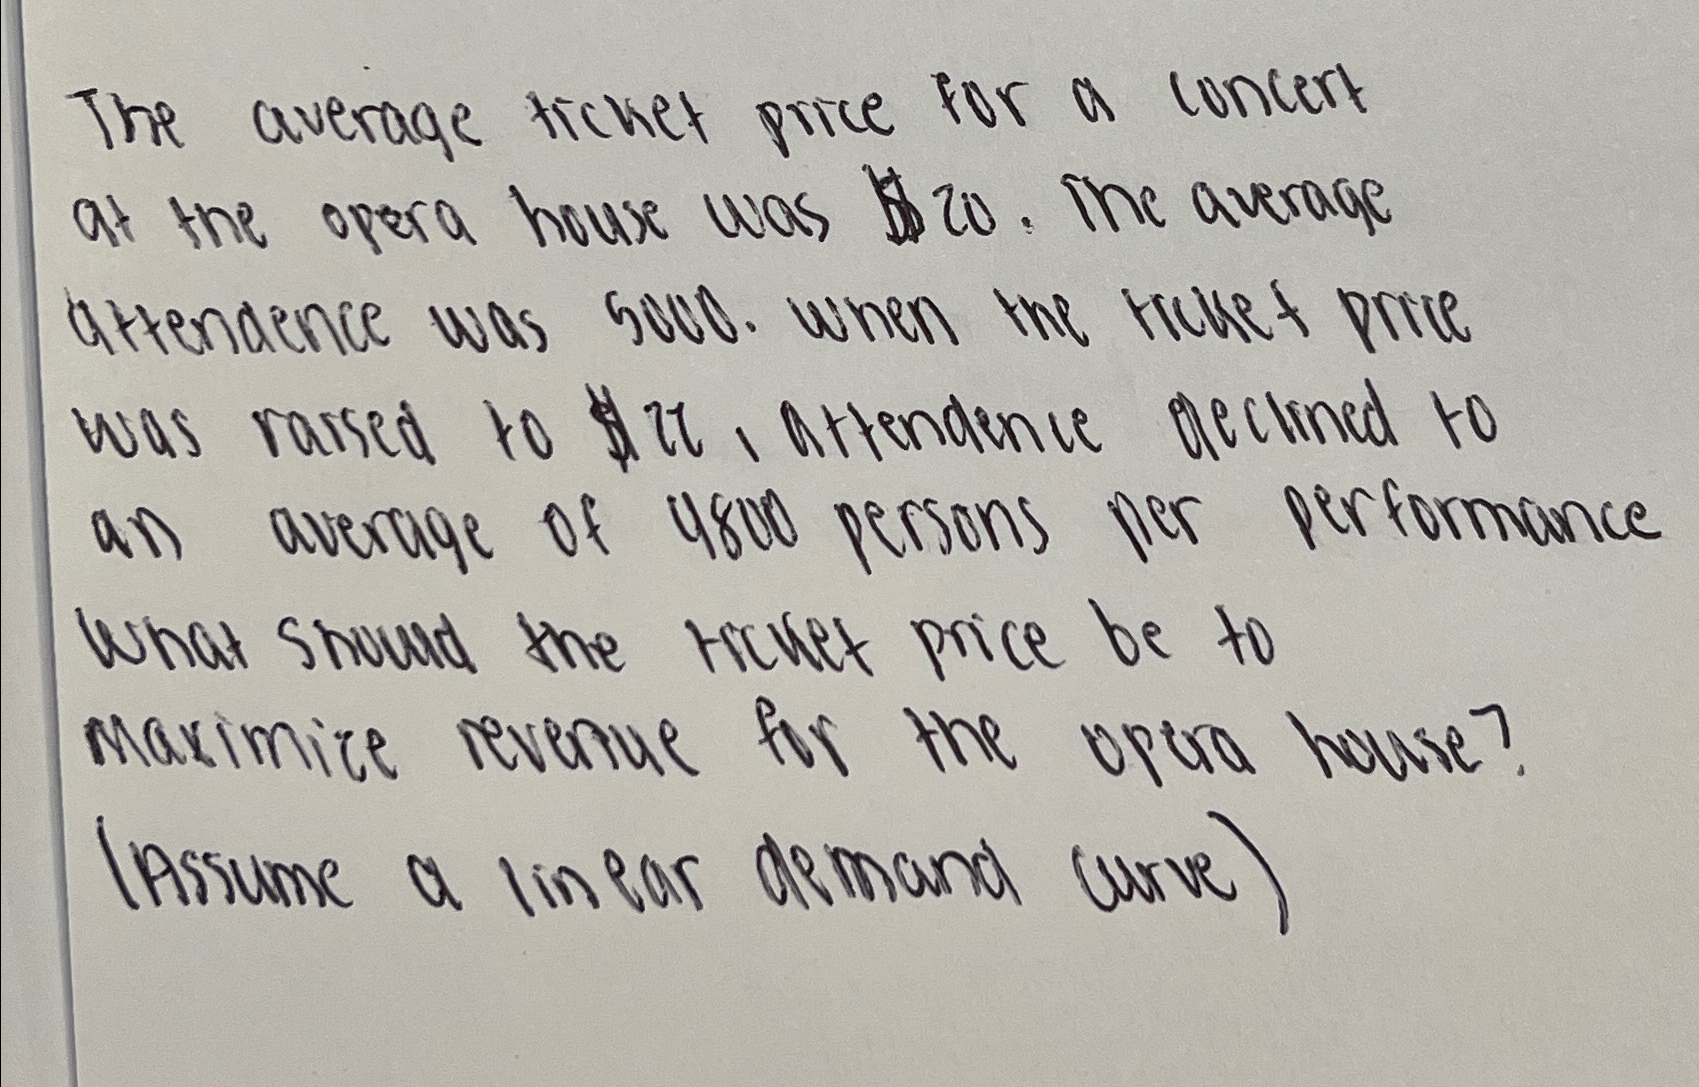 The average ticket price for a concert
at the opera house was $20. The average
attendence was 5000. When the ticket price
was raised to $22, attendence declined to
an average of 4800 persons per performance
What should the ticket price be to
maximize revenue for the opera house?
(Assume a linear demand curve)